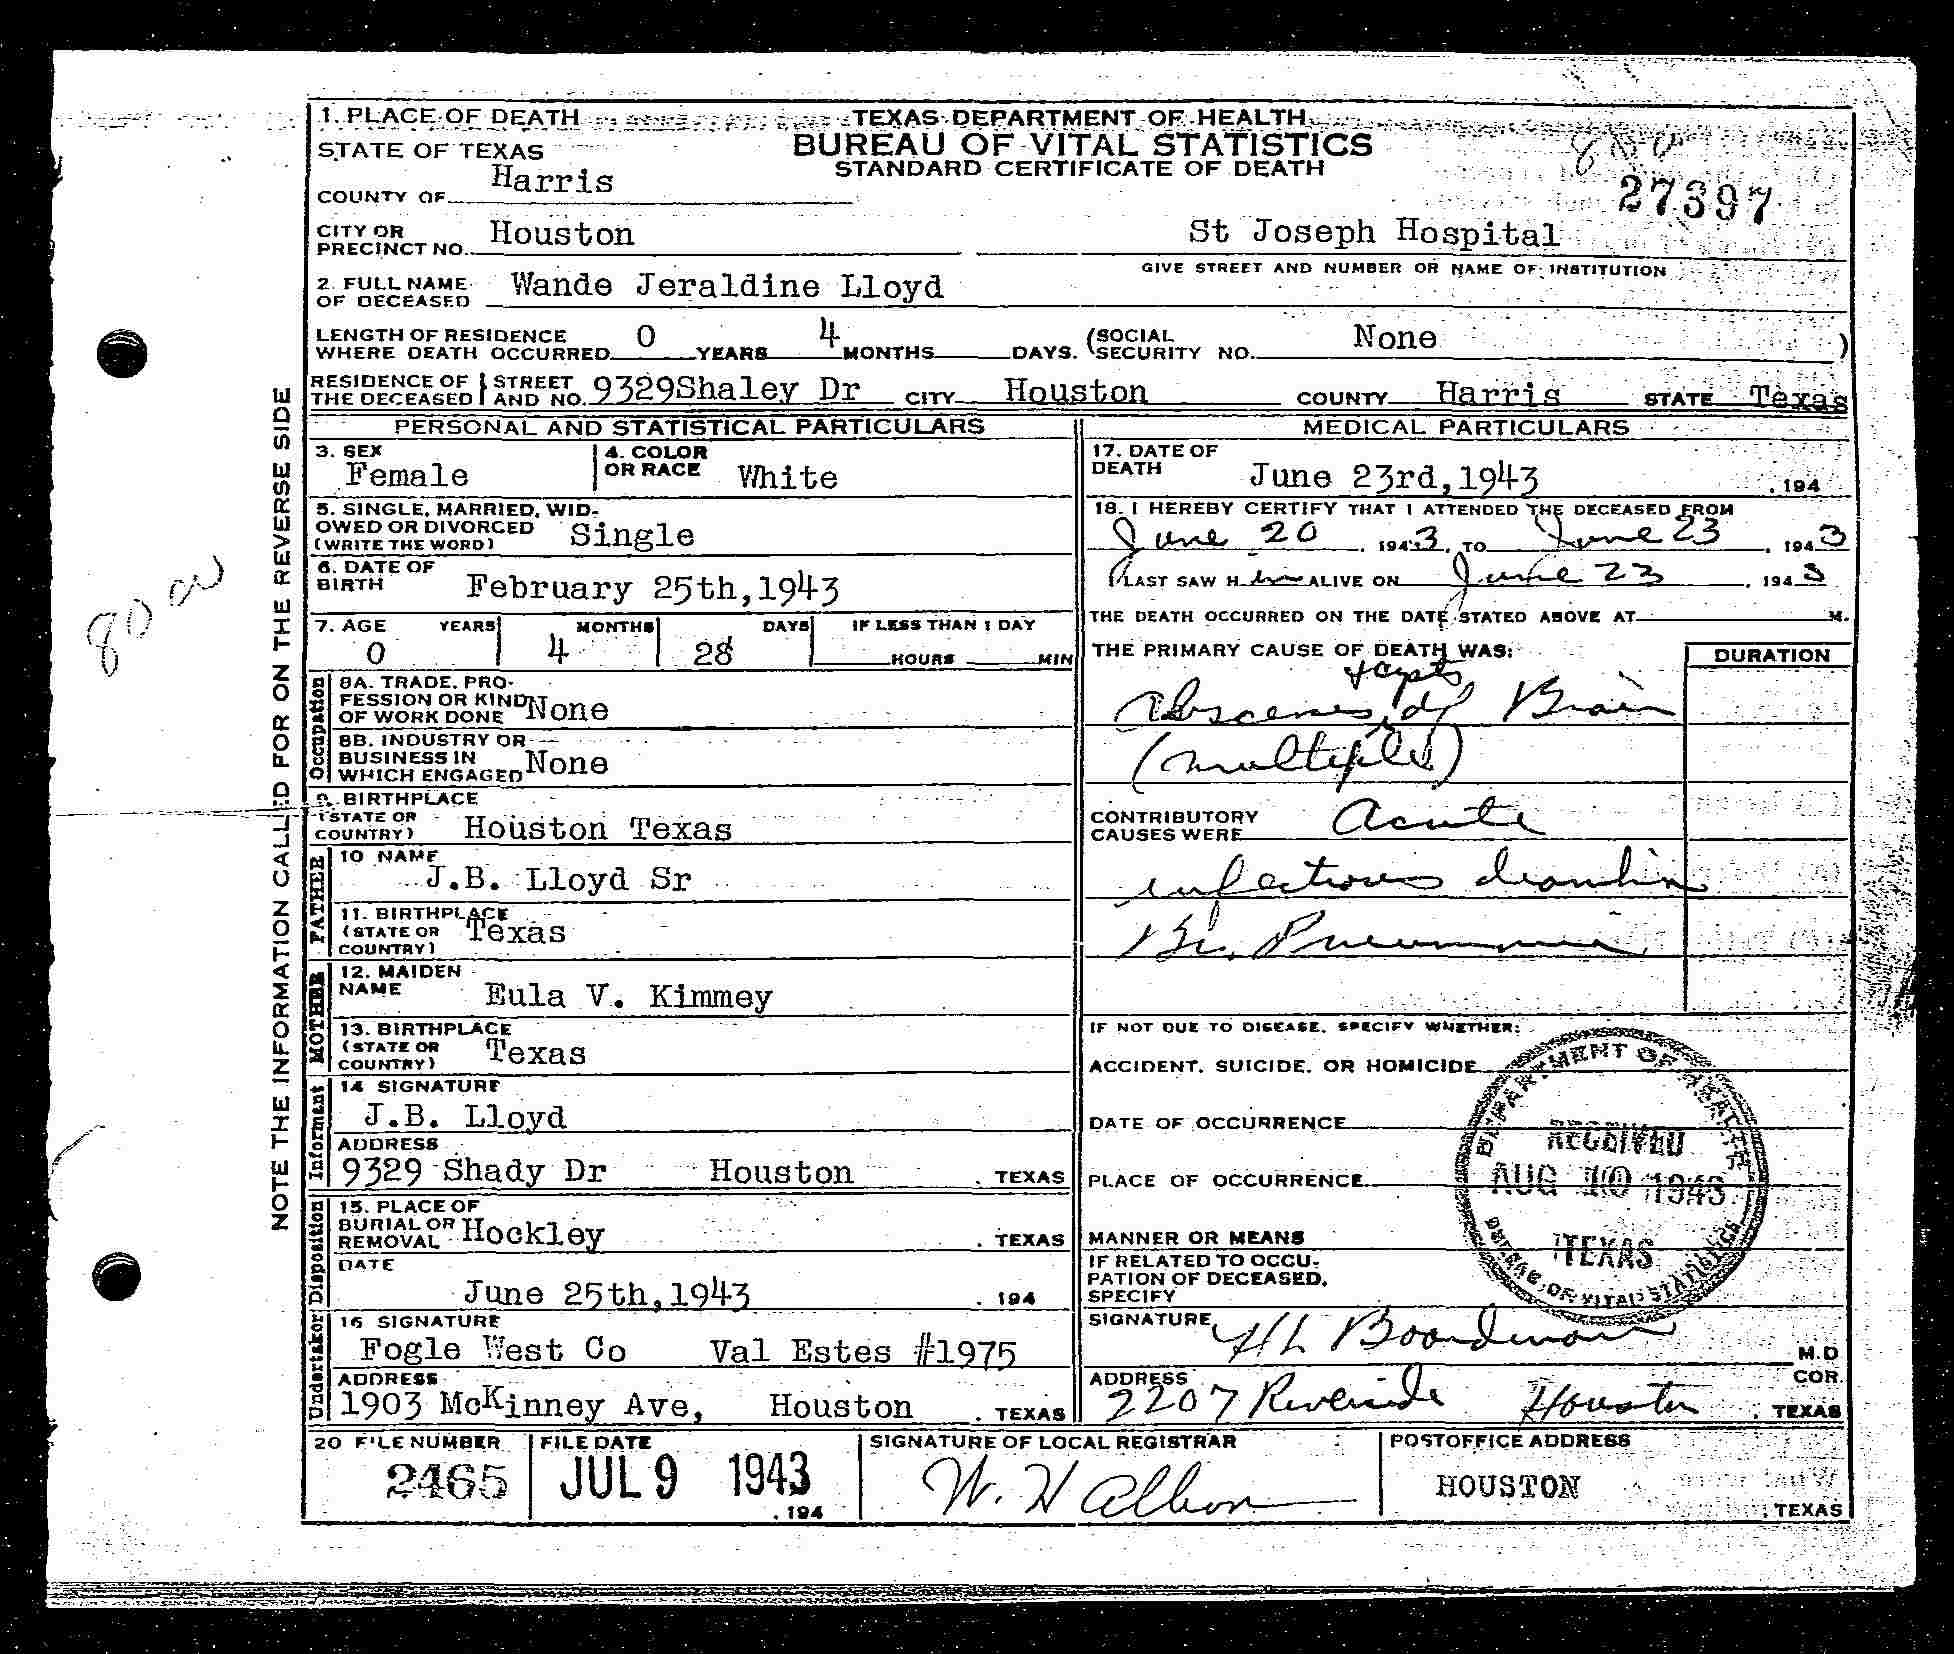 1. PLACE OF DEATH
TEXAS DEPARTMENT OF HEALTH
BUREAU OF VITAL STATISTICS
STANDARD CERTIFICATE OF DEATH
STATE OF TEXAS
COUNTY OF Harris
27397
CITY OR PRECINCT NO. Houston
St Joseph Hospital
GIVE STREET AND NUMBER OR NAME OF INSTITUTION
2. FULL NAME OF DECEASED Wande Jeraldine Lloyd
LENGTH OF RESIDENCE WHERE DEATH OCCURRED 0 YEARS 4 MONTHS DAYS. (SOCIAL SECURITY NO. None )
RESIDENCE OF THE DECEASED STREET AND NO. 9329Shaley Dr CITY Houston COUNTY Harris STATE Texas
PERSONAL AND STATISTICAL PARTICULARS
3. SEX Female
4. COLOR OR RACE White
5. SINGLE, MARRIED, WIDOWED OR DIVORCED (WRITE THE WORD) Single
6. DATE OF BIRTH February 25th,1943
7. AGE YEARS MONTHS DAYS IF LESS THAN 1 DAY
0 4 28 HOURS MIN
Occupation
8A. TRADE, PROFESSION OR KIND OF WORK DONE None
8B. INDUSTRY OR BUSINESS IN WHICH ENGAGED None
9. BIRTHPLACE (STATE OR COUNTRY) Houston Texas
FATHER
10 NAME J.B. Lloyd Sr
11. BIRTHPLACE (STATE OR COUNTRY) Texas
MOTHER
12. MAIDEN NAME Eula V. Kimmey
13. BIRTHPLACE (STATE OR COUNTRY) Texas
Informant
14 SIGNATURE J.B. Lloyd
ADDRESS
9329 Shady Dr Houston , TEXAS
Disposition
15. PLACE OF BURIAL OR REMOVAL Hockley , TEXAS
DATE
June 25th,1943 , 194
Undertaker
16 SIGNATURE
Fogle West Co Val Estes #1975
ADDRESS
1903 McKinney Ave, Houston , TEXAS
MEDICAL PARTICULARS
17. DATE OF DEATH June 23rd,1943 , 194
18. I HEREBY CERTIFY THAT I ATTENDED THE DECEASED FROM
June 20, 1943, TO June 23, 1943
I LAST SAW H im ALIVE ON June 23, 1943
THE DEATH OCCURRED ON THE DATE STATED ABOVE AT M.
THE PRIMARY CAUSE OF DEATH WAS: DURATION
Abscesses of Brain
(multiple)
CONTRIBUTORY CAUSES WERE Acute
infectious diarrhea
Br. Pneumonia
IF NOT DUE TO DISEASE, SPECIFY WHETHER:
ACCIDENT, SUICIDE, OR HOMICIDE
DATE OF OCCURRENCE
PLACE OF OCCURRENCE
MANNER OR MEANS
IF RELATED TO OCCUPATION OF DECEASED, SPECIFY
DEPARTMENT OF HEALTH
RECEIVED
AUG 10 1943
TEXAS
BUREAU OF VITAL STATISTICS
SIGNATURE H L Boardman M.D
COR.
ADDRESS 2207 Riverside Houston , TEXAS
20 FILE NUMBER 2465
FILE DATE JUL 9 1943 , 194
SIGNATURE OF LOCAL REGISTRAR
W. H Albon
POSTOFFICE ADDRESS
HOUSTON
, TEXAS
NOTE THE INFORMATION CALLED FOR ON THE REVERSE SIDE